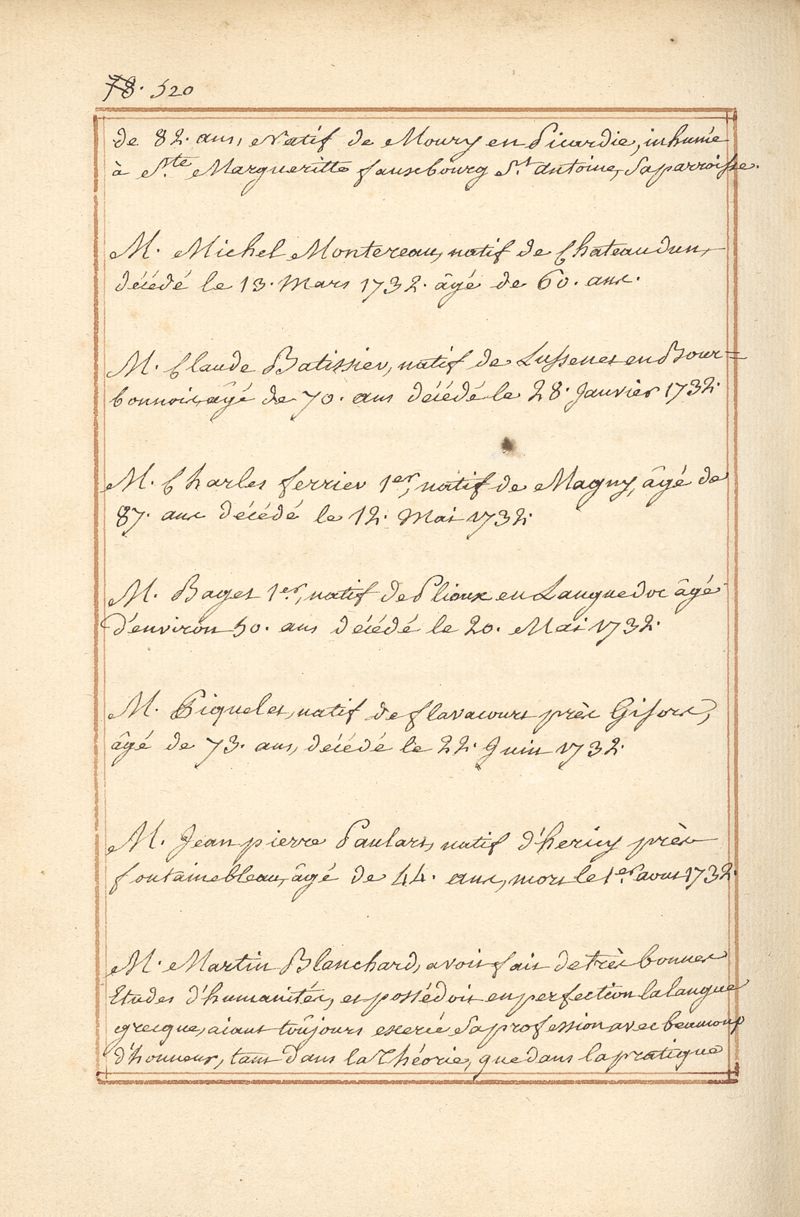 78. 520
de 82. ans, Natif de Moury en Picardie, inhumé
à Ste. Margueritte fauxbourg St. antoine, Sa parroisse.
M. Michel Montereau, natif de Chateaudun,
décédé le 13. Mars 1732. âgé de 60. ans.
M. Claude Batissier, natif de Lussenet en Bour=
bonnois, âgé de 70. ans décédé le 28. Janvier 1732.
M. Charles ferrier 1er, natif de Magny, âgé de
87. ans décédé le 12. Mai 1732.
M. Baget 1er, natif de Plioux en Languedoc âgé
d'environ 50. ans décédé le 20. Mai 1732.
M. Piquelet, natif de flavacourt près Gisors,
âgé de 73. ans, décédé le 22. Juin 1732.
M. Jean pierre Paulart, natif d'hericy près
fontainebleau, âgé de 44. ans, mort le 1er. aout 1732.
M. Martin Blanchard, avoit fait de très bonnes
Etudes d'humanités, et possédoit en perfection la langue
grecque, aiant toûjours exercé Sa profession avec beaucoup
d'honneur, tant dans la Théorie, que dans la pratique